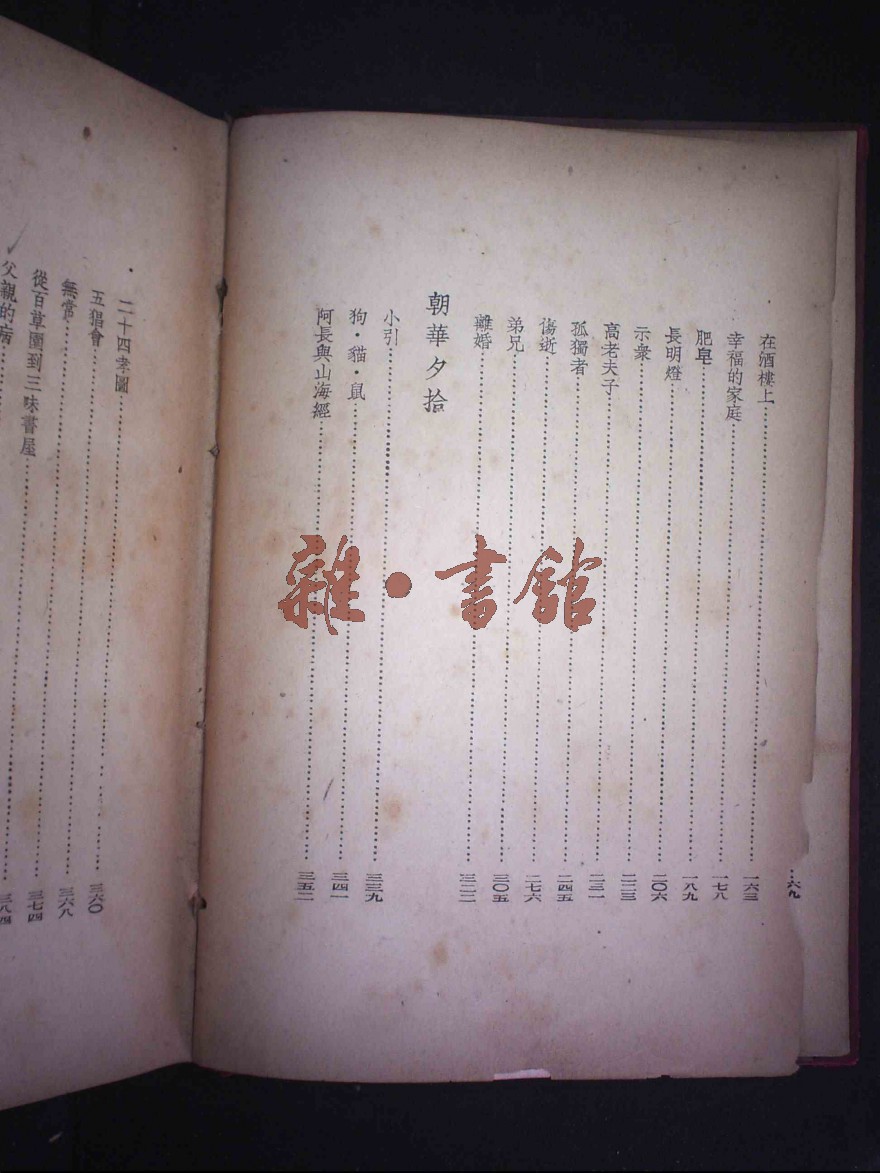 六九
在酒樓上 一六三
幸福的家庭 一七八
肥皂 一八九
長明燈 二〇六
示衆 二二三
高老夫子 二三一
孤獨者 二四五
傷逝 二七六
弟兄 三〇五
離婚 三二二
朝華夕拾
小引 三三九
狗·貓·鼠 三四一
阿長與山海經 三五二
二十四孝圖 三六〇
五猖會 三六八
無常 三七四
從百草園到三味書屋 三八四
父親的病
雜·書館